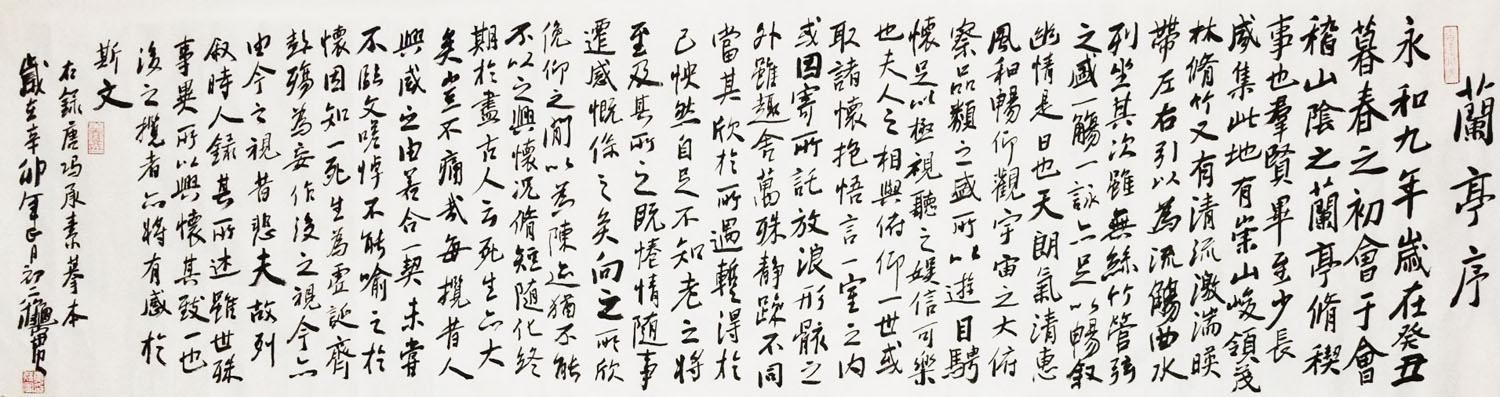 蘭亭序
永和九年歲在癸丑
暮春之初會于會
稽山陰之蘭亭脩禊
事也羣賢畢至少長
咸集此地有崇山峻領茂
林脩竹又有清流激湍暎
帶左右引以為流觴曲水
列坐其次雖無絲竹管弦
之盛一觴一詠亦足以暢敘
幽情是日也天朗氣清惠
風和暢仰觀宇宙之大俯
察品類之盛所以遊目騁
懷足以極視聽之娛信可樂
也夫人之相與俯仰一世或
取諸懷抱悟言一室之內
或因寄所託放浪形骸之
外雖趣舍萬殊靜躁不同
當其欣於所遇蹔得於
己怏然自足不知老之將
至及其所之既惓情隨事
遷感慨係之矣向之所欣
俛仰之閒以為陳迹猶不能
不以之興懷況脩短隨化終
期於盡古人云死生亦大
矣豈不痛哉每攬昔人
興感之由若合一契未嘗
不臨文嗟悼不能喻之於
懷固知一死生為虛誕齊
彭殤為妄作後之視今亦
由今之視昔悲夫故列
敘時人錄其所述雖世殊
事異所以興懷其致一也
後之攬者亦將有感於
斯文
右錄唐馮承素摹本
歲在辛卯年
月初二